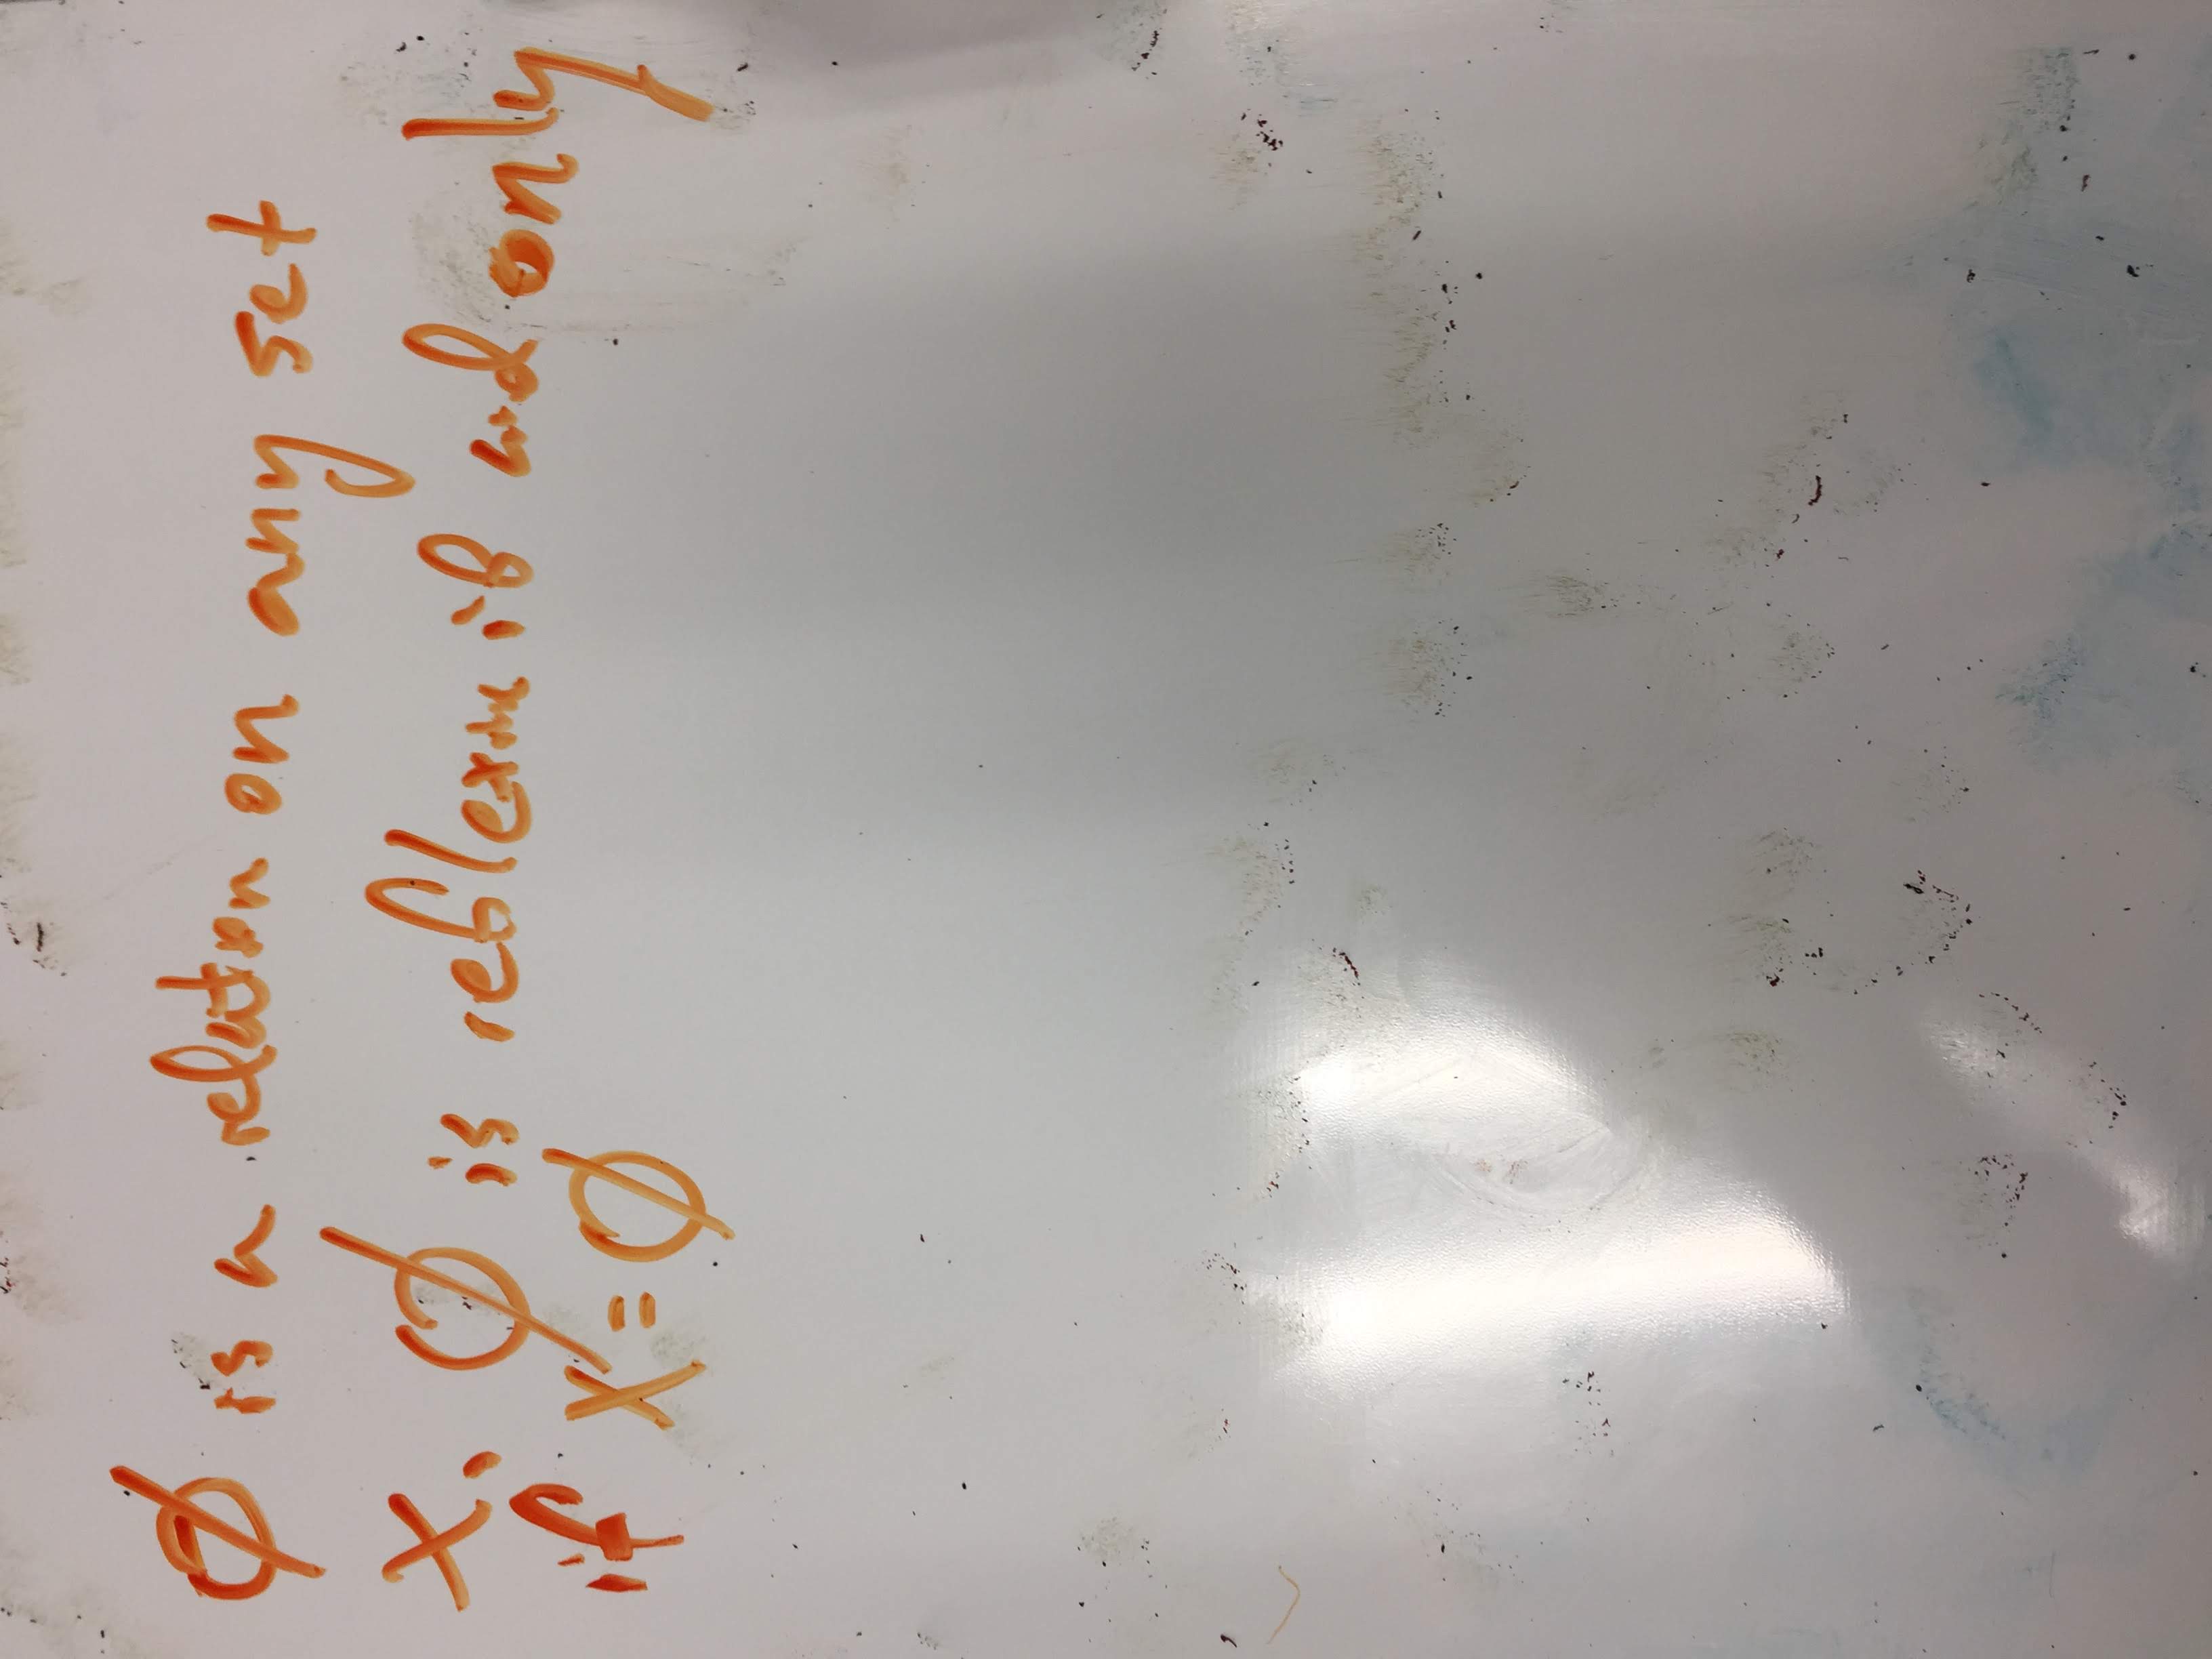 ∅ is a relation on any set
X, ∅ is reflexive if and only
if X = ∅